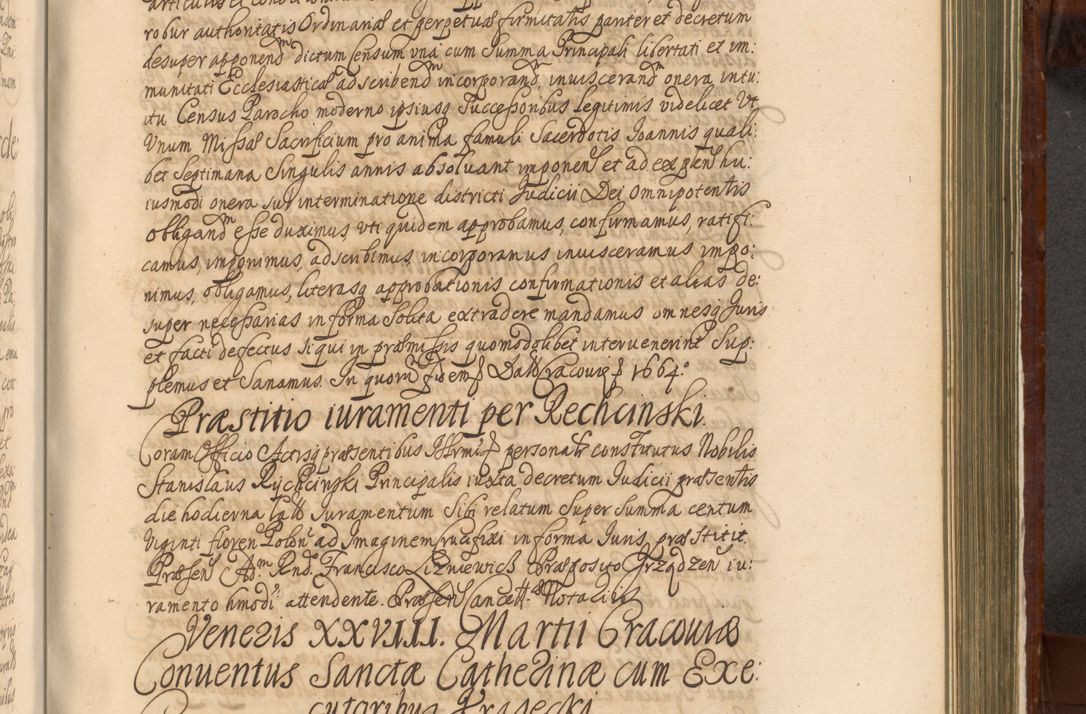 robur authoritatis Ordinariæ et perpetuæ firmitatis pariter et decretum
desuper apponend dictum sensum una cum Summa Principali libertati et im:
munitati Ecclesiasticæ adscribend incorporand, inuiscerand onera intu:
itu Census Parocho moderno ipsiusq Successoribus legitimis videlicet Vt
Vnum Missæ Sacrificium pro anima famuli Sacerdotis Joannis quali:
bet Septimana Singulis annis absoluant imponen et ad explen hu:
iusmodi onera sub interminatione districti Judicii Dei Omnipotentis
obligand esse duximus, vti quidem approbamus, confirmamus, ratifi:
camus, imponimus, adscribimus incorporamus inuisceramus impo:
nimus, obligamus, literasq approbationis confirmationis et alias de:
super necessarias in forma solita extradere mandamus omnesq Juris
et facti defectus si qui in præmissis quomodolibet interuenerint Sup:
plemus et Sanamus. In quorum fidem Dat Cracouiæ 1664.
Præstitio iuramenti per Rechcinski.
Coram Officio Actisq præsentibus personalr constitutus Nobilis
Stanislaus Rychcinski Principalis iuxta decretum Judicii præsentis
die hodierna latt Juramentum Sibi relatum super summa centum
Viginti floren Polon ad Imaginem crucifixi in forma Juris præstitit.
Præsen Adm Rnd. Francisco Lizniewicz Præposito Grządzen iu:
ramento hmodi attendente. Præsen Notarius
Veneris XXVIII. Martii Cracouiæ
Conuentus Sanctæ Catherinæ cum Exe:
cutoribus